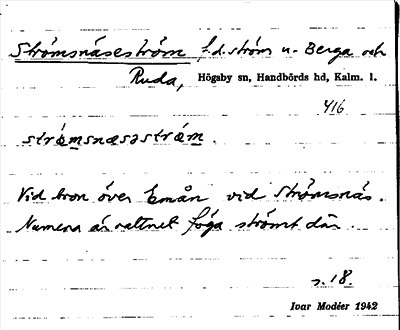 Strömsnäseström f.d. ström u. Berga och
Ruda, Högsby sn, Handbörds hd, Kalm. l.
416
strömsnæsəström.
Vid bron över Emån vid Strömsnäs.
Numera är vattnet föga strömt där.
s. 18.
Ivar Modéer 1942